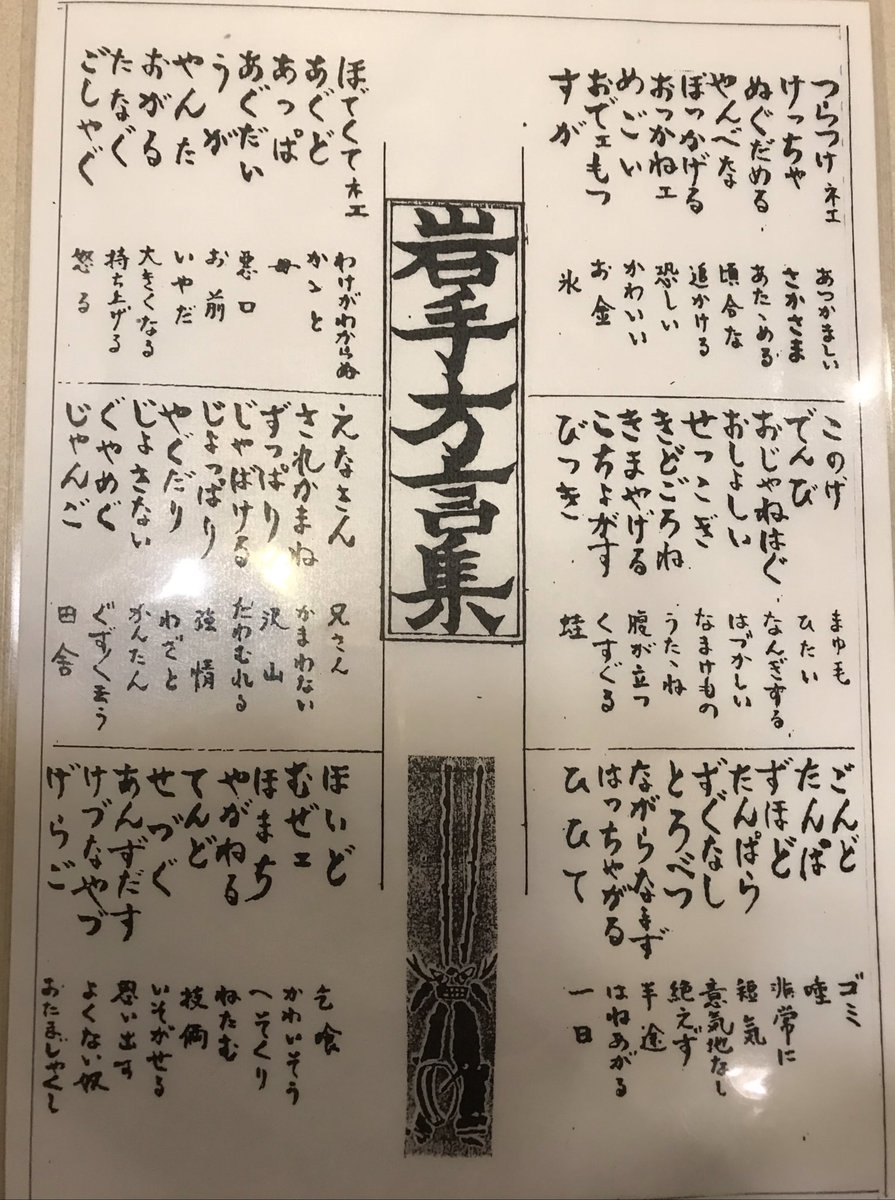 岩手方言集
つらつけネエ
けっちゃ
ぬぐだめる
やんべな
ぼっかげる
おっかねェ
めごい
おでェもつ
すが
あつかましい
さかさま
あたゝめる
頃合な
追かける
恐しい
かわいい
お金
氷
このげ
でんび
おじゃねはぐ
おしょしい
せっこぎ
きどごろね
きまやげる
こちょがす
びっき
まゆ毛
ひたい
なんぎする
はづかしい
なまけもの
うたゝね
腹が立つ
くすぐる
蛙
ごんど
たんぱ
ずほど
たんぱら
ずぐなし
とろべつ
ながらなまず
はっちゃがる
ひひて
ゴミ
唾
非常に
短気
意気地なし
絶えず
半途
はねあがる
一日
ほでくてネエ
あぐど
あっぱ
あぐだい
うが
やんた
おがる
たなぐ
ごしゃぐ
わけがわからぬ
かゝと
母
悪口
お前
いやだ
大きくなる
持ち上げる
怒る
えなさん
されかまね
ずっぱり
じゃばける
じょっぱり
やぐだり
じょさない
ぐやめぐ
じゃんご
兄さん
かまわない
沢山
たわむれる
強情
わざと
かんたん
ぐず〱云う
田舎
ほいど
むぜェ
ほまち
やがねる
てんど
せづぐ
あんずだす
けづなやづ
げらご
乞喰
かわいそう
へそくり
ねたむ
技倆
いそがせる
思い出す
よくない奴
おたまじゃくし